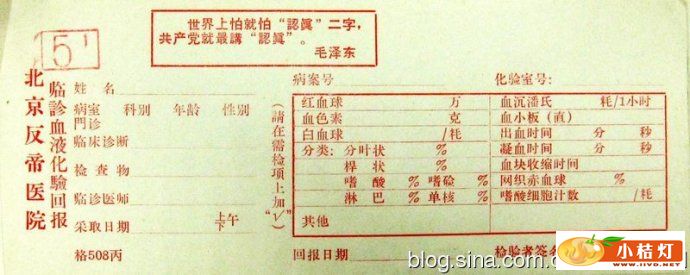 世界上怕就怕“認真”二字，
共产党就最講“認真”。
毛泽东
51
北京反帝医院
临診血液化驗回报
姓 名
病室 科别 年龄 性别
門診
临床诊断
检 查 物
临诊医师
采取日期 上下午
格508丙
(請在需检項上加“√”)
病案号
化验室号：
红血球 万
血色素 克
白血球 /耗
分类：分叶状 %
桿状 %
嗜酸 % 嗜硷 %
淋巴 % 单核 %
其他
血沉潘氏 耗/1小时
血小板(直)
出血时间 分 秒
凝血时间 分 秒
血块收缩时间
网织赤血球 %
嗜酸细胞汁数 /耗
回报日期
检验者签名
blog.sina.com.c
小桔灯
www.jy0832.com